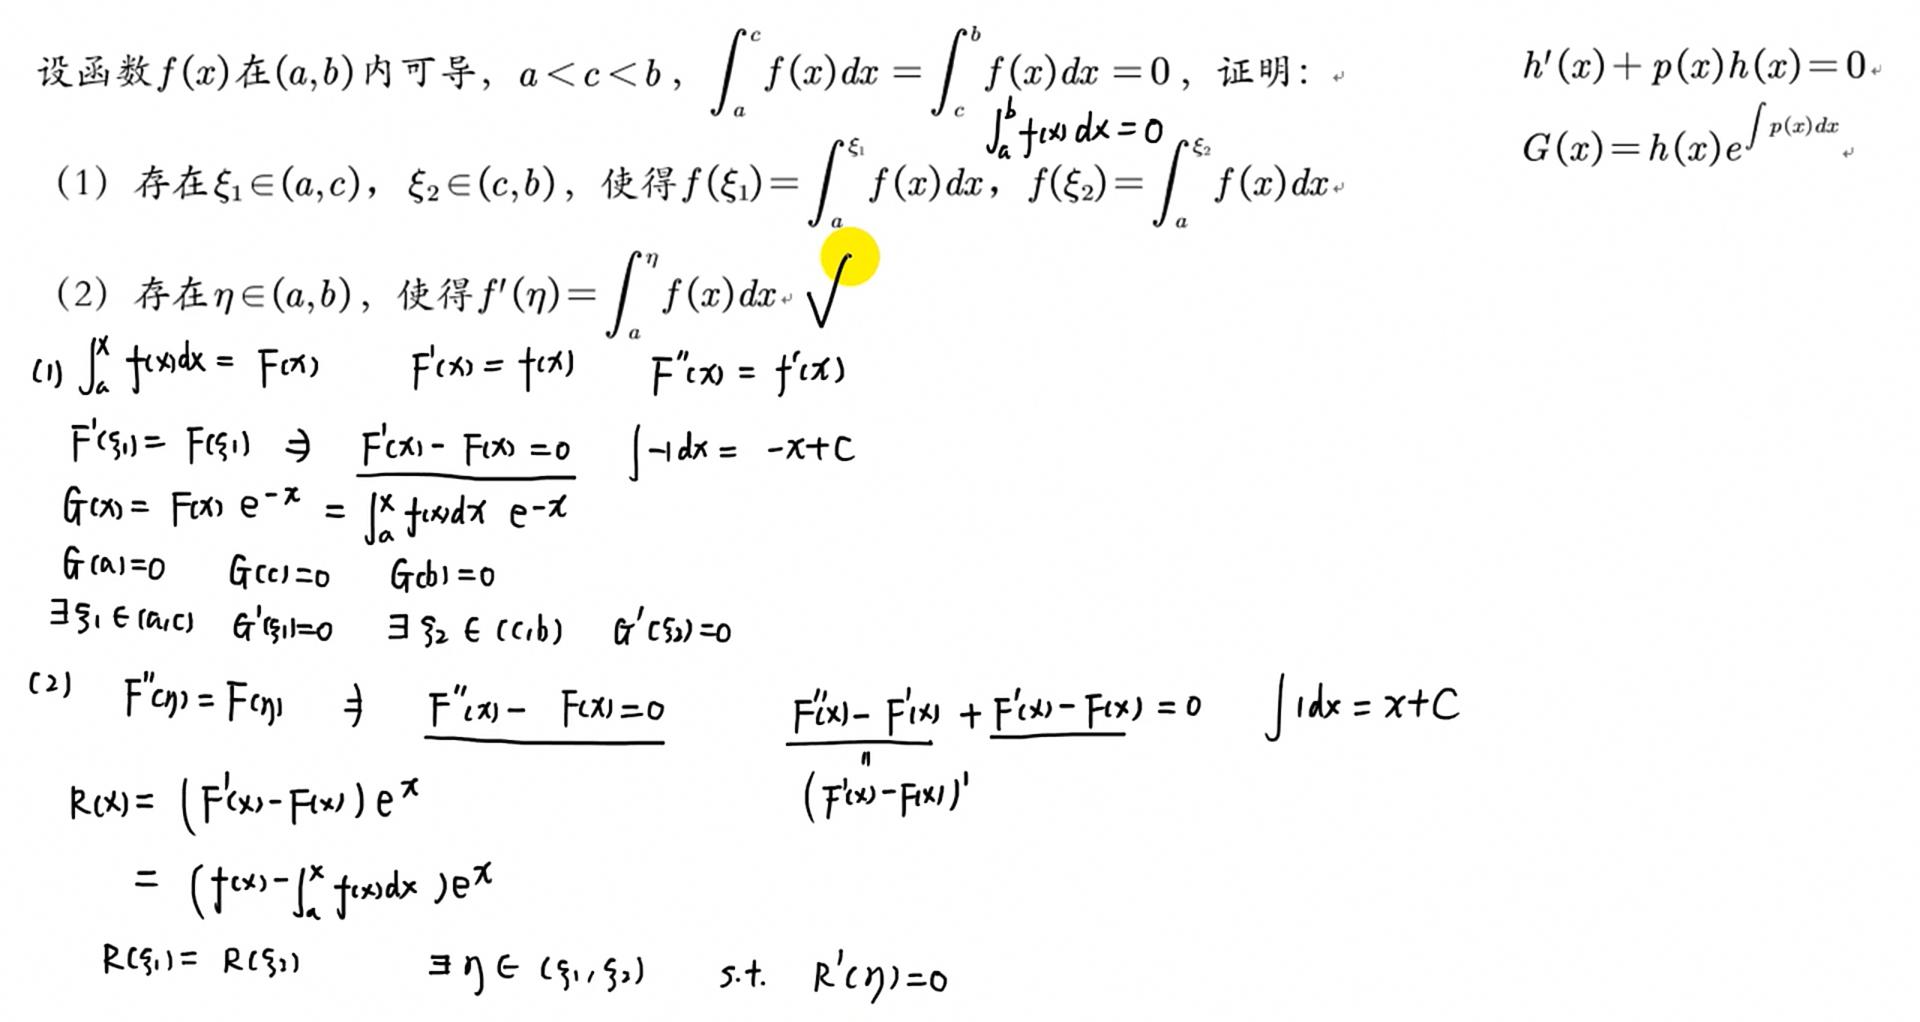 设函数f(x)在(a,b)内可导，a<c<b，∫_a^c f(x)dx=∫_c^b f(x)dx=0，证明：
∫_a^b f(x)dx=0
（1）存在ξ₁∈(a,c)，ξ₂∈(c,b)，使得f(ξ₁)=∫_a^{ξ₁} f(x)dx，f(ξ₂)=∫_a^{ξ₂} f(x)dx
（2）存在η∈(a,b)，使得f′(η)=∫_a^η f(x)dx √
h′(x)+p(x)h(x)=0
G(x)=h(x)e^{∫p(x)dx}
(1) ∫_a^x f(x)dx = F(x) F'(x) = f(x) F''(x) = f'(x)
F'(ξ₁) = F(ξ₁) ⇒ F'(x) - F(x) = 0 ∫-1dx = -x+C
G(x) = F(x) e^{-x} = ∫_a^x f(x)dx e^{-x}
G(a)=0 G(c)=0 G(b)=0
∃ξ₁∈(a,c) G'(ξ₁)=0 ∃ξ₂∈(c,b) G'(ξ₂)=0
(2) F''(η) = F(η) ⇒ F''(x) - F(x) = 0 F''(x) - F'(x) + F'(x) - F(x) = 0 ∫1dx = x+C
"
R(x) = (F'(x) - F(x))e^x (F'(x) - F(x))'
= (f(x) - ∫_a^x f(x)dx)e^x
R(ξ₁) = R(ξ₂) ∃η∈(ξ₁,ξ₂) s.t. R'(η)=0